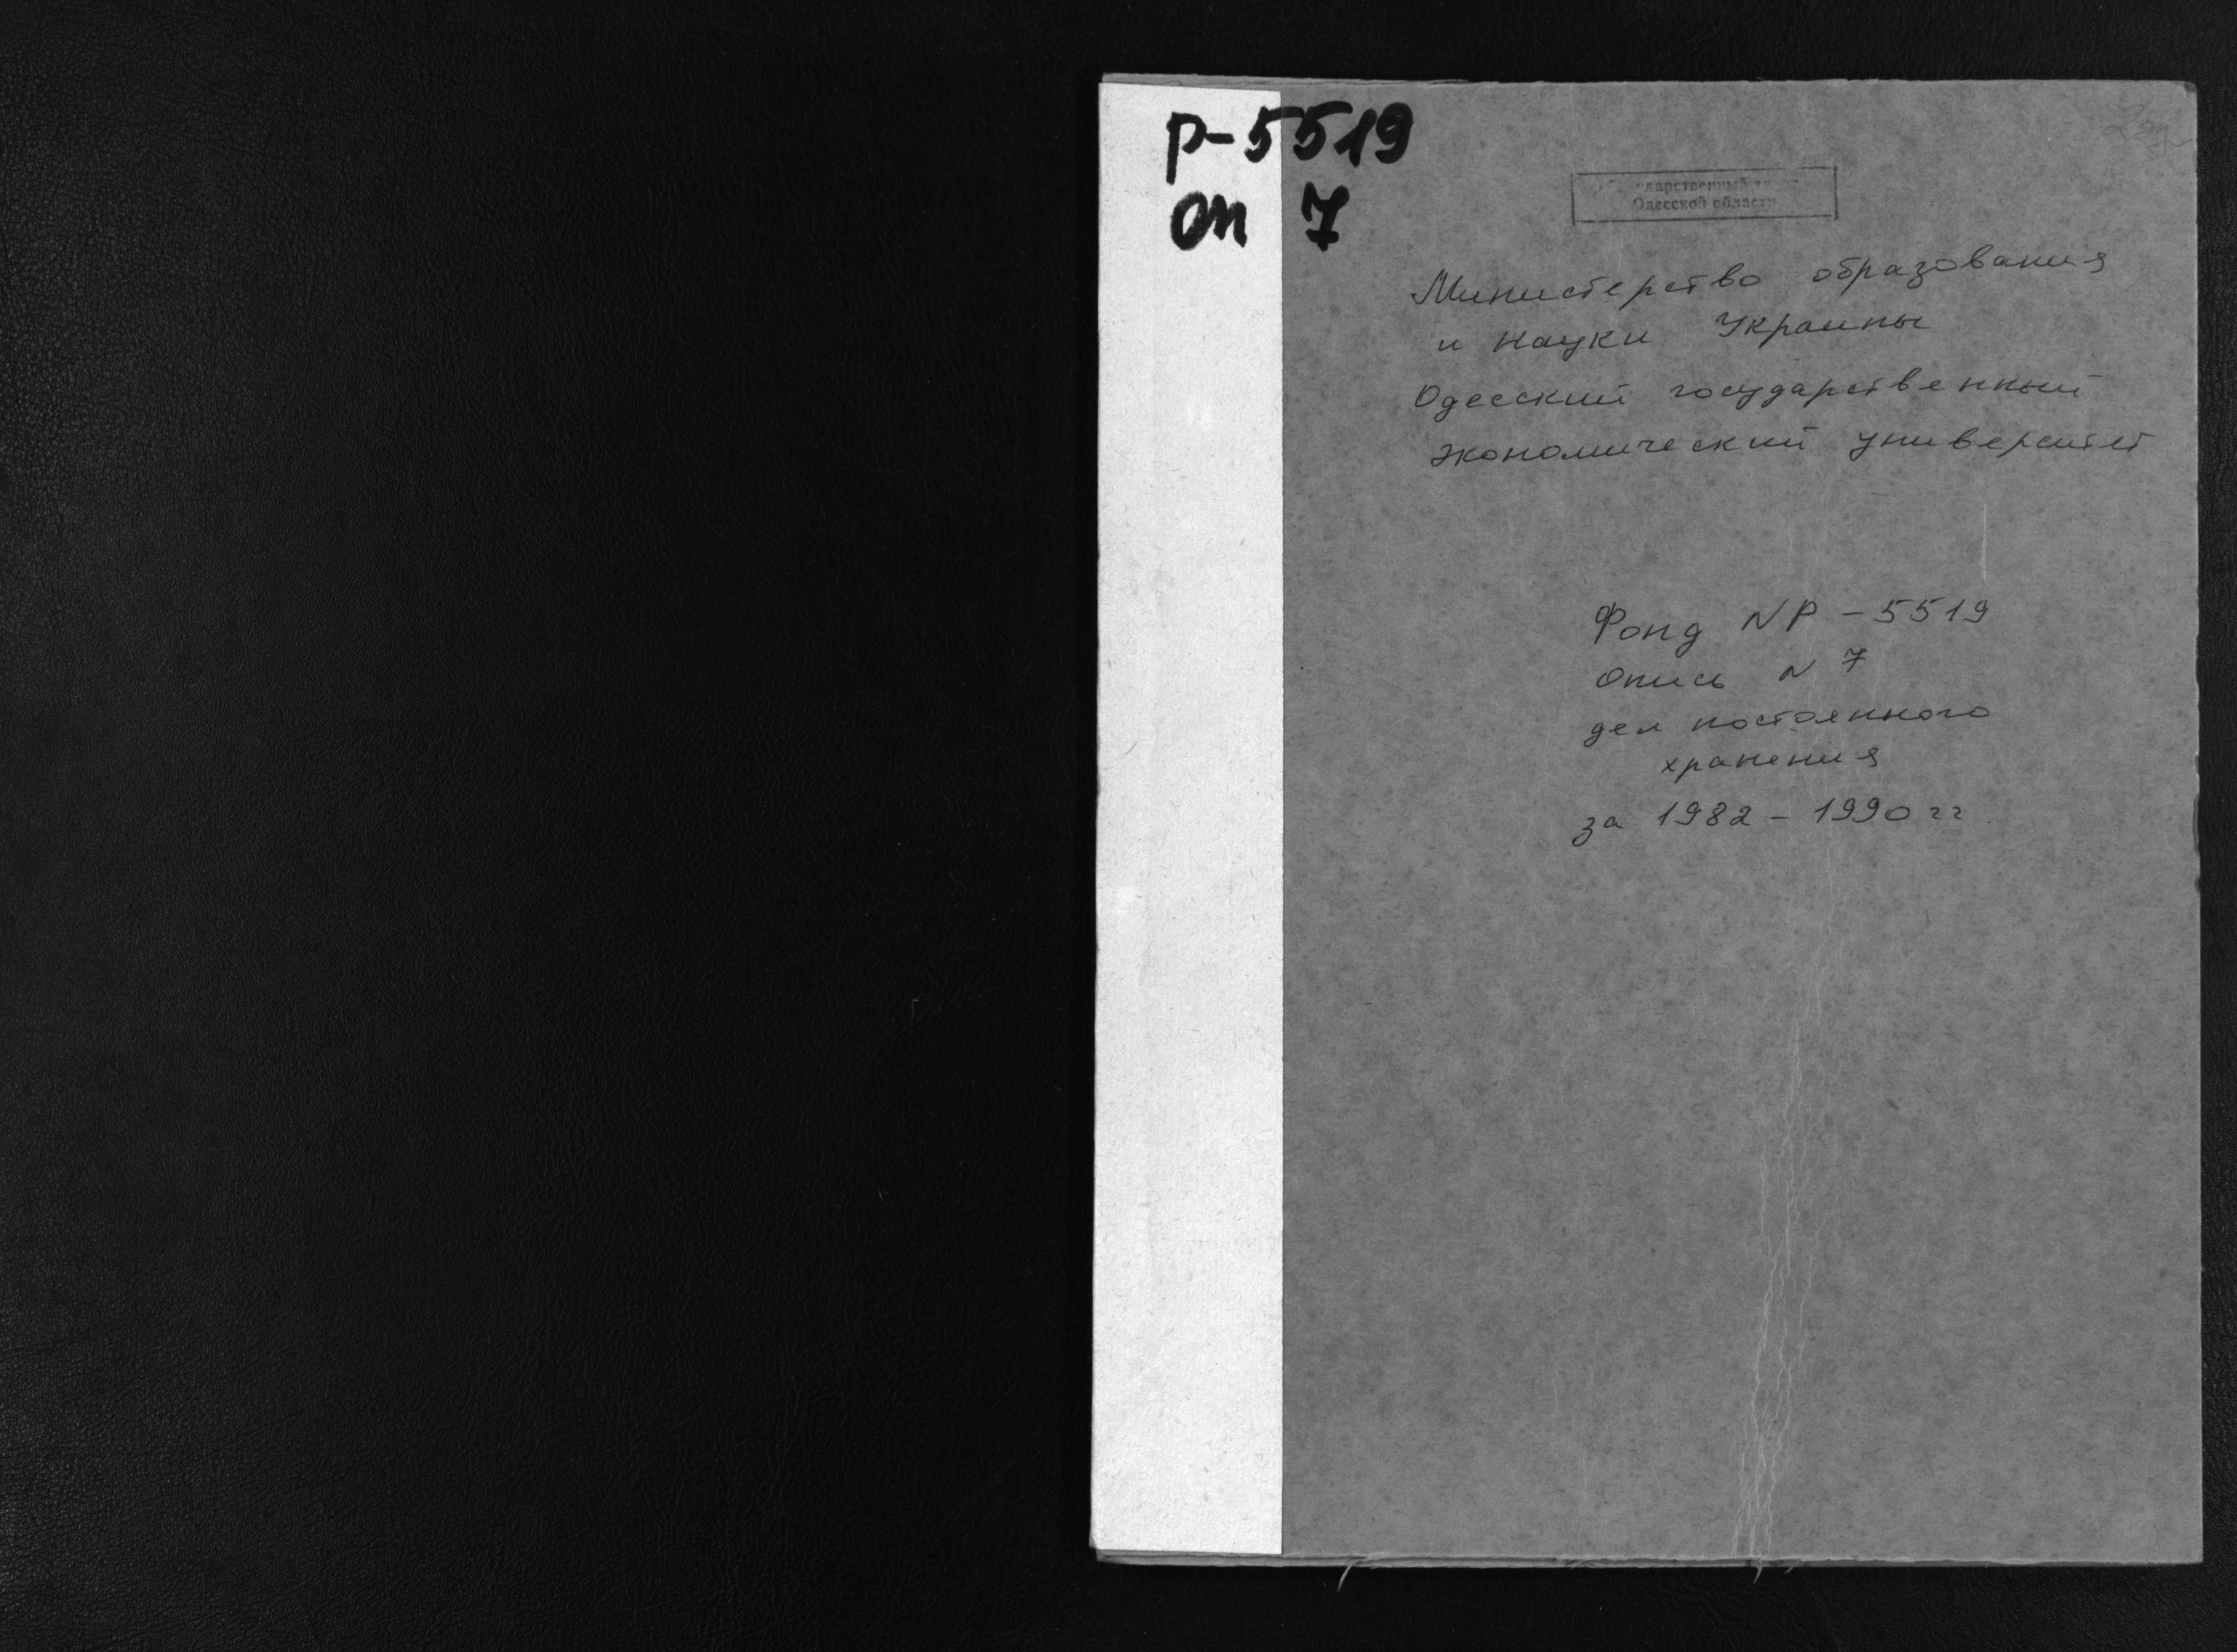 Р-5519
оп 7
Одесской области
Министерство образования
и науки Украины
Одесский государственный
экономический университет
Фонд N Р - 5519
Опись N 7
дел постоянного
хранения
за 1982 - 1990 гг